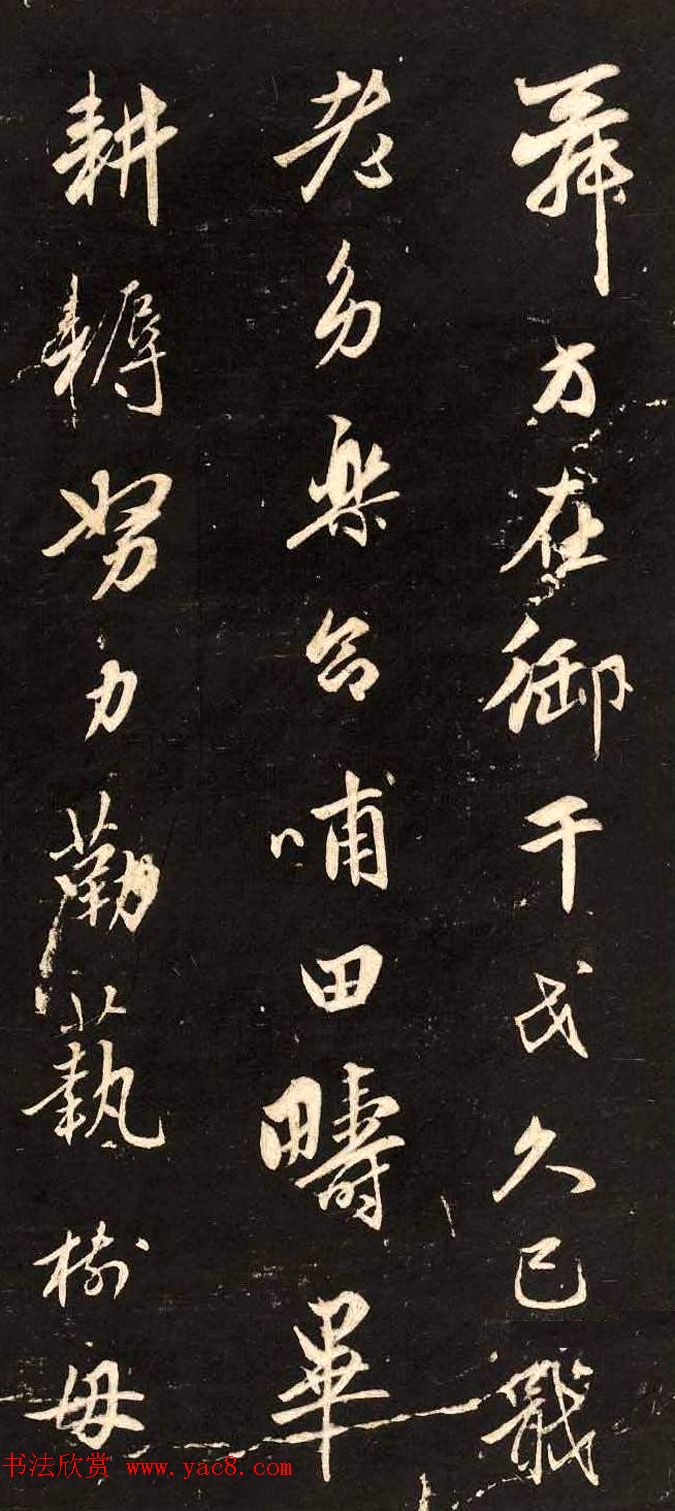 舜方在御干戈久已戢
老幼樂含哺田疇畢
耕耨努力勤蓺樹毋
书法欣赏 www.yac8.com